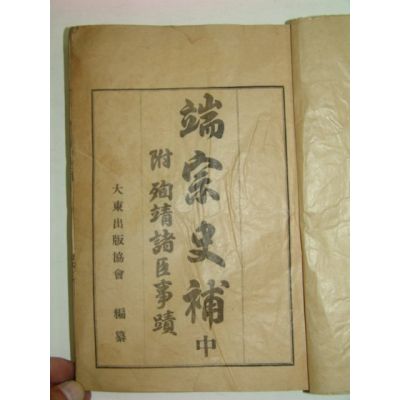 端宗史補中
附殉靖諸臣事蹟
大東出版協會 編纂